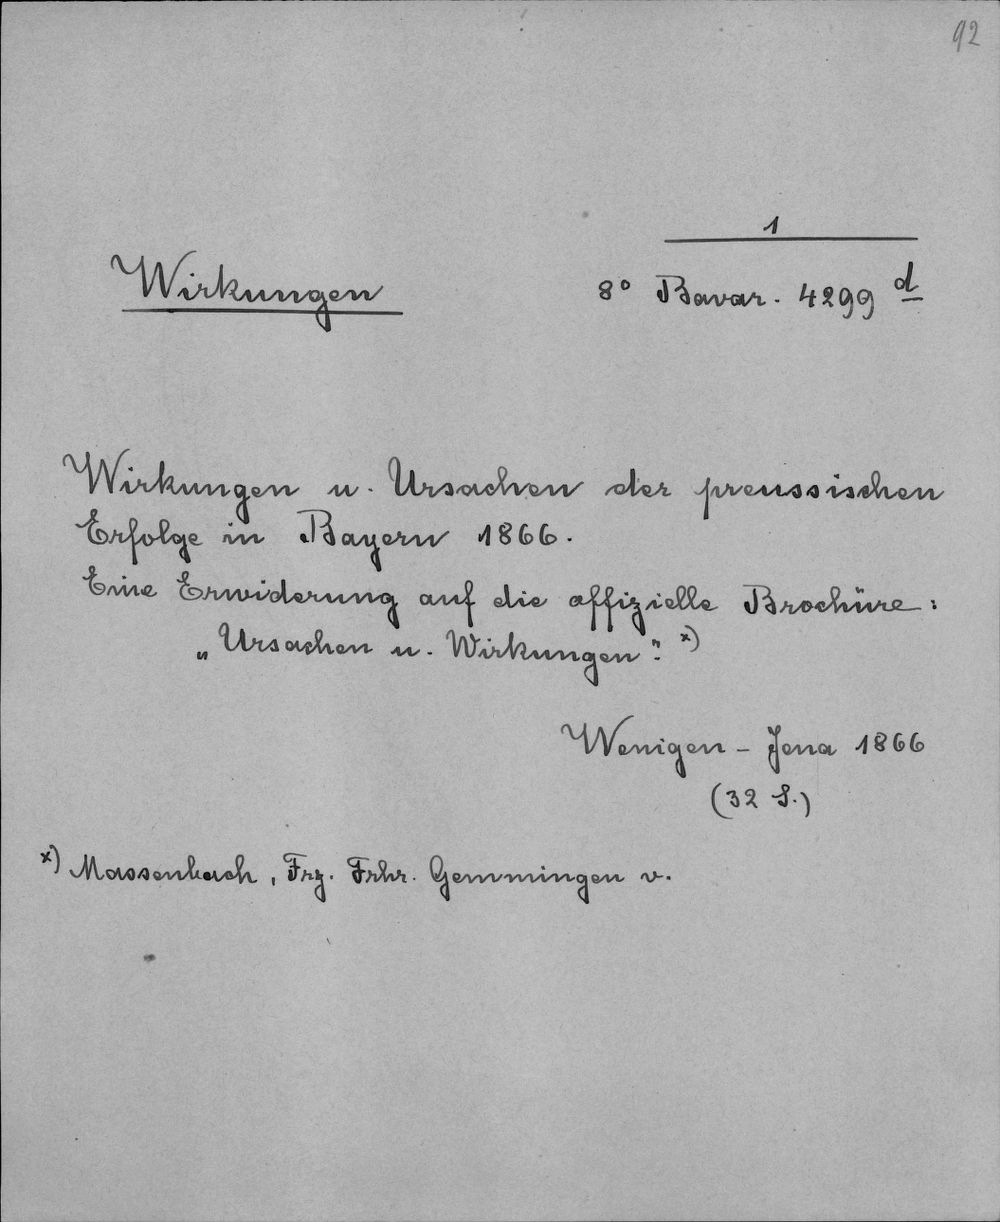 92
1
Wirkungen 8° Bavar. 4299 d
Wirkungen u. Ursachen der preussischen
Erfolge in Bayern 1866.
Eine Erwiderung auf die offizielle Brochüre:
„Ursachen u. Wirkungen". x)
Wenigen - Jena 1866
(32 S.)
x) Massenbach, Frz. Frhr. Gemmingen v.